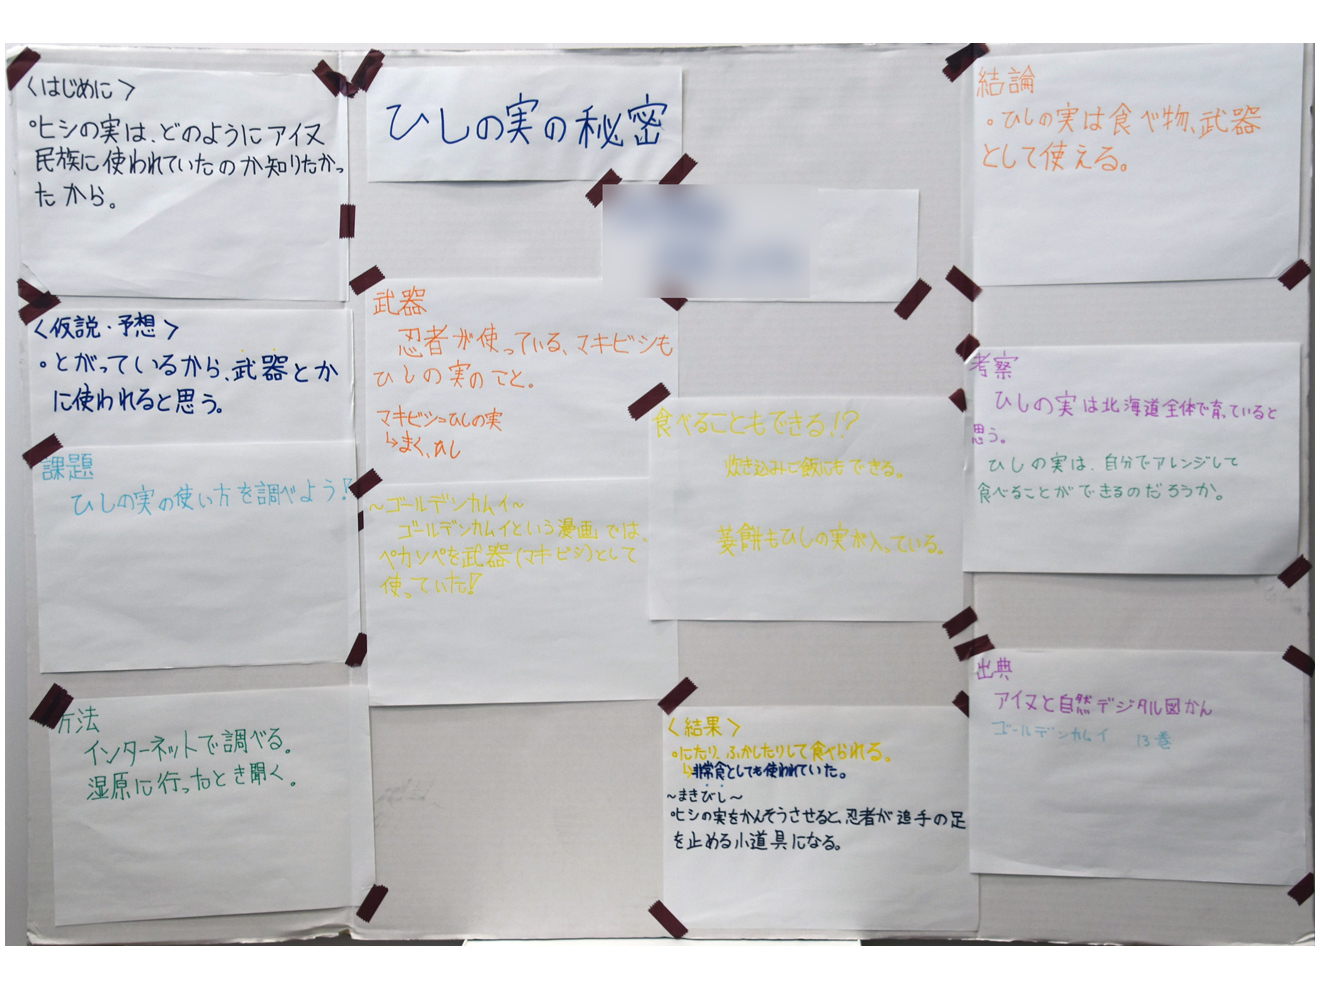 ひしの実の秘密
<はじめに>
°ヒシの実は、どのようにアイヌ
民族に使われていたのか知りたかっ
たから。
<仮説・予想>
・とがっているから、武器とか
に使われると思う。
課題
ひしの実の使い方を調べよう!
方法
インターネットで調べる。
湿原に行ったとき聞く。
武器
忍者が使っている、マキビシも
ひしの実のこと。
マキビシ=ひしの実
↳まく、ひし
~ゴールデンカムイ~
ゴールデンカムイという漫画では、
ペカンペを武器(マキビシ)として
使っていた!
食べることもできる!?
炊き込みご飯にもできる。
姜餅もひしの実が入っている。
<結果>
°にたり、ふかしたりして食べられる。
↳非常食としても使われていた。
~まきびし~
°ヒシの実をかんそうさせると、忍者が追手の足
を止める小道具になる。
結論
。ひしの実は食べ物、武器
として使える。
考察
ひしの実は北海道全体で育っていると
思う。
ひしの実は、自分でアレンジして
食べることができるのだろうか。
出典
アイヌと自然デジタル図かん
ゴールデンカムイ 13巻